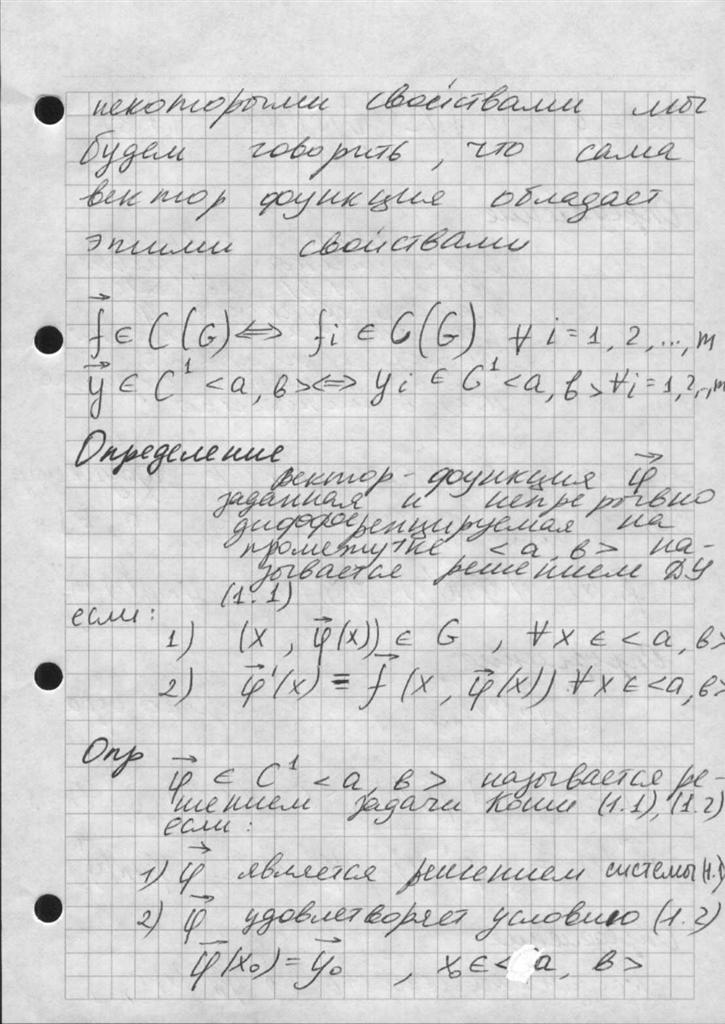 некоторыми свойствами мы
будем говорить, что сама
вектор функция обладает
этими свойствами
f⃗ ∈ C(G) ⇔ fi ∈ C(G) ∀ i = 1, 2, ..., m
y⃗ ∈ C¹ <a, b> ⇔ yi ∈ C¹ <a, b> ∀ i = 1, 2, .., m
Определение
вектор-функция φ⃗
заданная и непрерывно
дифференцируемая на
промежутке <a, b> на-
зывается решением ДУ
(1.1)
если:
1) (x, φ⃗(x)) ∈ G, ∀ x ∈ <a, b>
2) φ⃗'(x) ≡ f⃗(x, φ⃗(x)) ∀ x ∈ <a, b>
Опр
φ⃗ ∈ C¹ <a, b> называется ре-
шением задачи Коши (1.1), (1.2)
если:
1) φ⃗ является решением системы (1.1)
2) φ⃗ удовлетворяет условию (1.2)
φ⃗(x₀) = y⃗₀, x₀ ∈ <a, b>